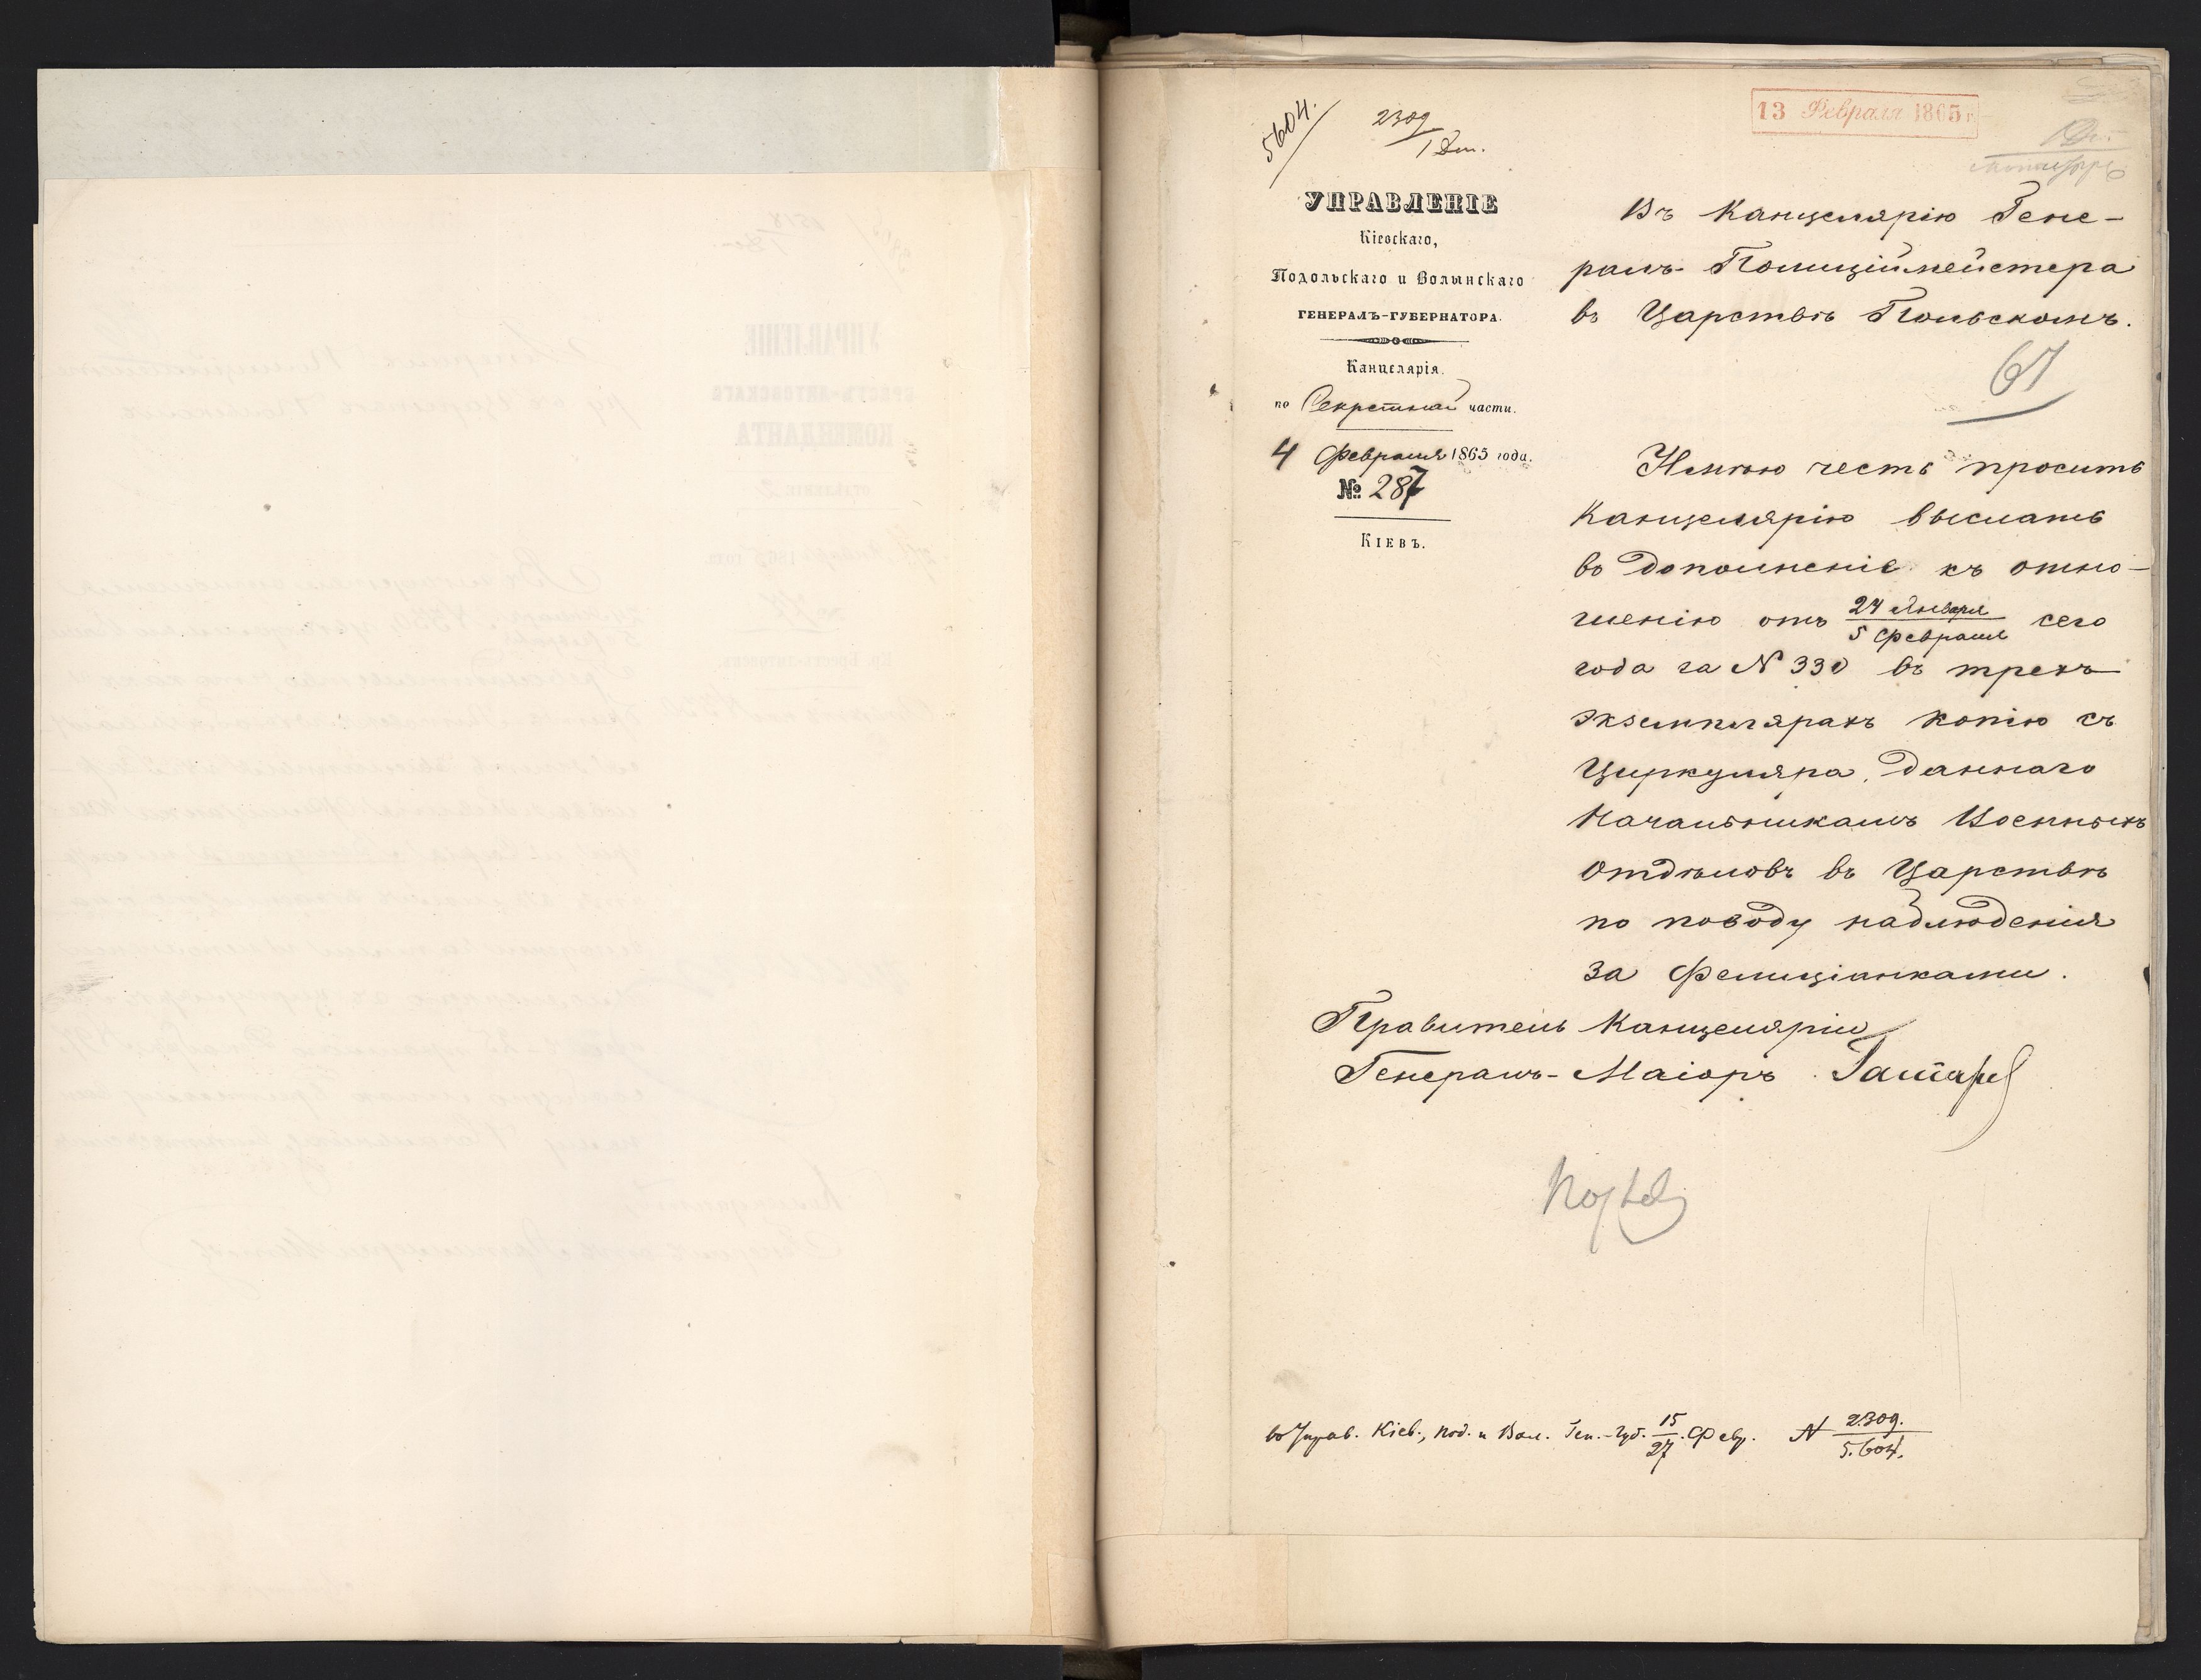 5604.
2309
1 Эт.
13 Февраля 1865 г.
УПРАВЛЕНІЕ
Кіевскаго,
Подольскаго и Волынскаго
ГЕНЕРАЛЪ-ГУБЕРНАТОРА.
Канцелярія.
по Секретной части.
4 Февраля 1865 года.
№ 287
КІЕВЪ.
Въ Канцелярію Гене-
ралъ-Полиціймейстера
въ Царствѣ Польскомъ.
67
Имѣю честь просить
Канцелярію выслать
въ дополненіе къ отно-
шенію отъ 24 Января / 5 Февраля сего
года за N 330 въ трехъ
экземплярахъ копію съ
Циркуляра, даннаго
Начальникамъ Военныхъ
Отдѣловъ въ Царствѣ
по поводу наблюденія
за Фелиціанками.
Правитель Канцеляріи
Генералъ-Маіоръ
въ Управ. Кіев., Под. и Вол. Ген.-Губ. 15/27 Февр. N 2309./5.604.